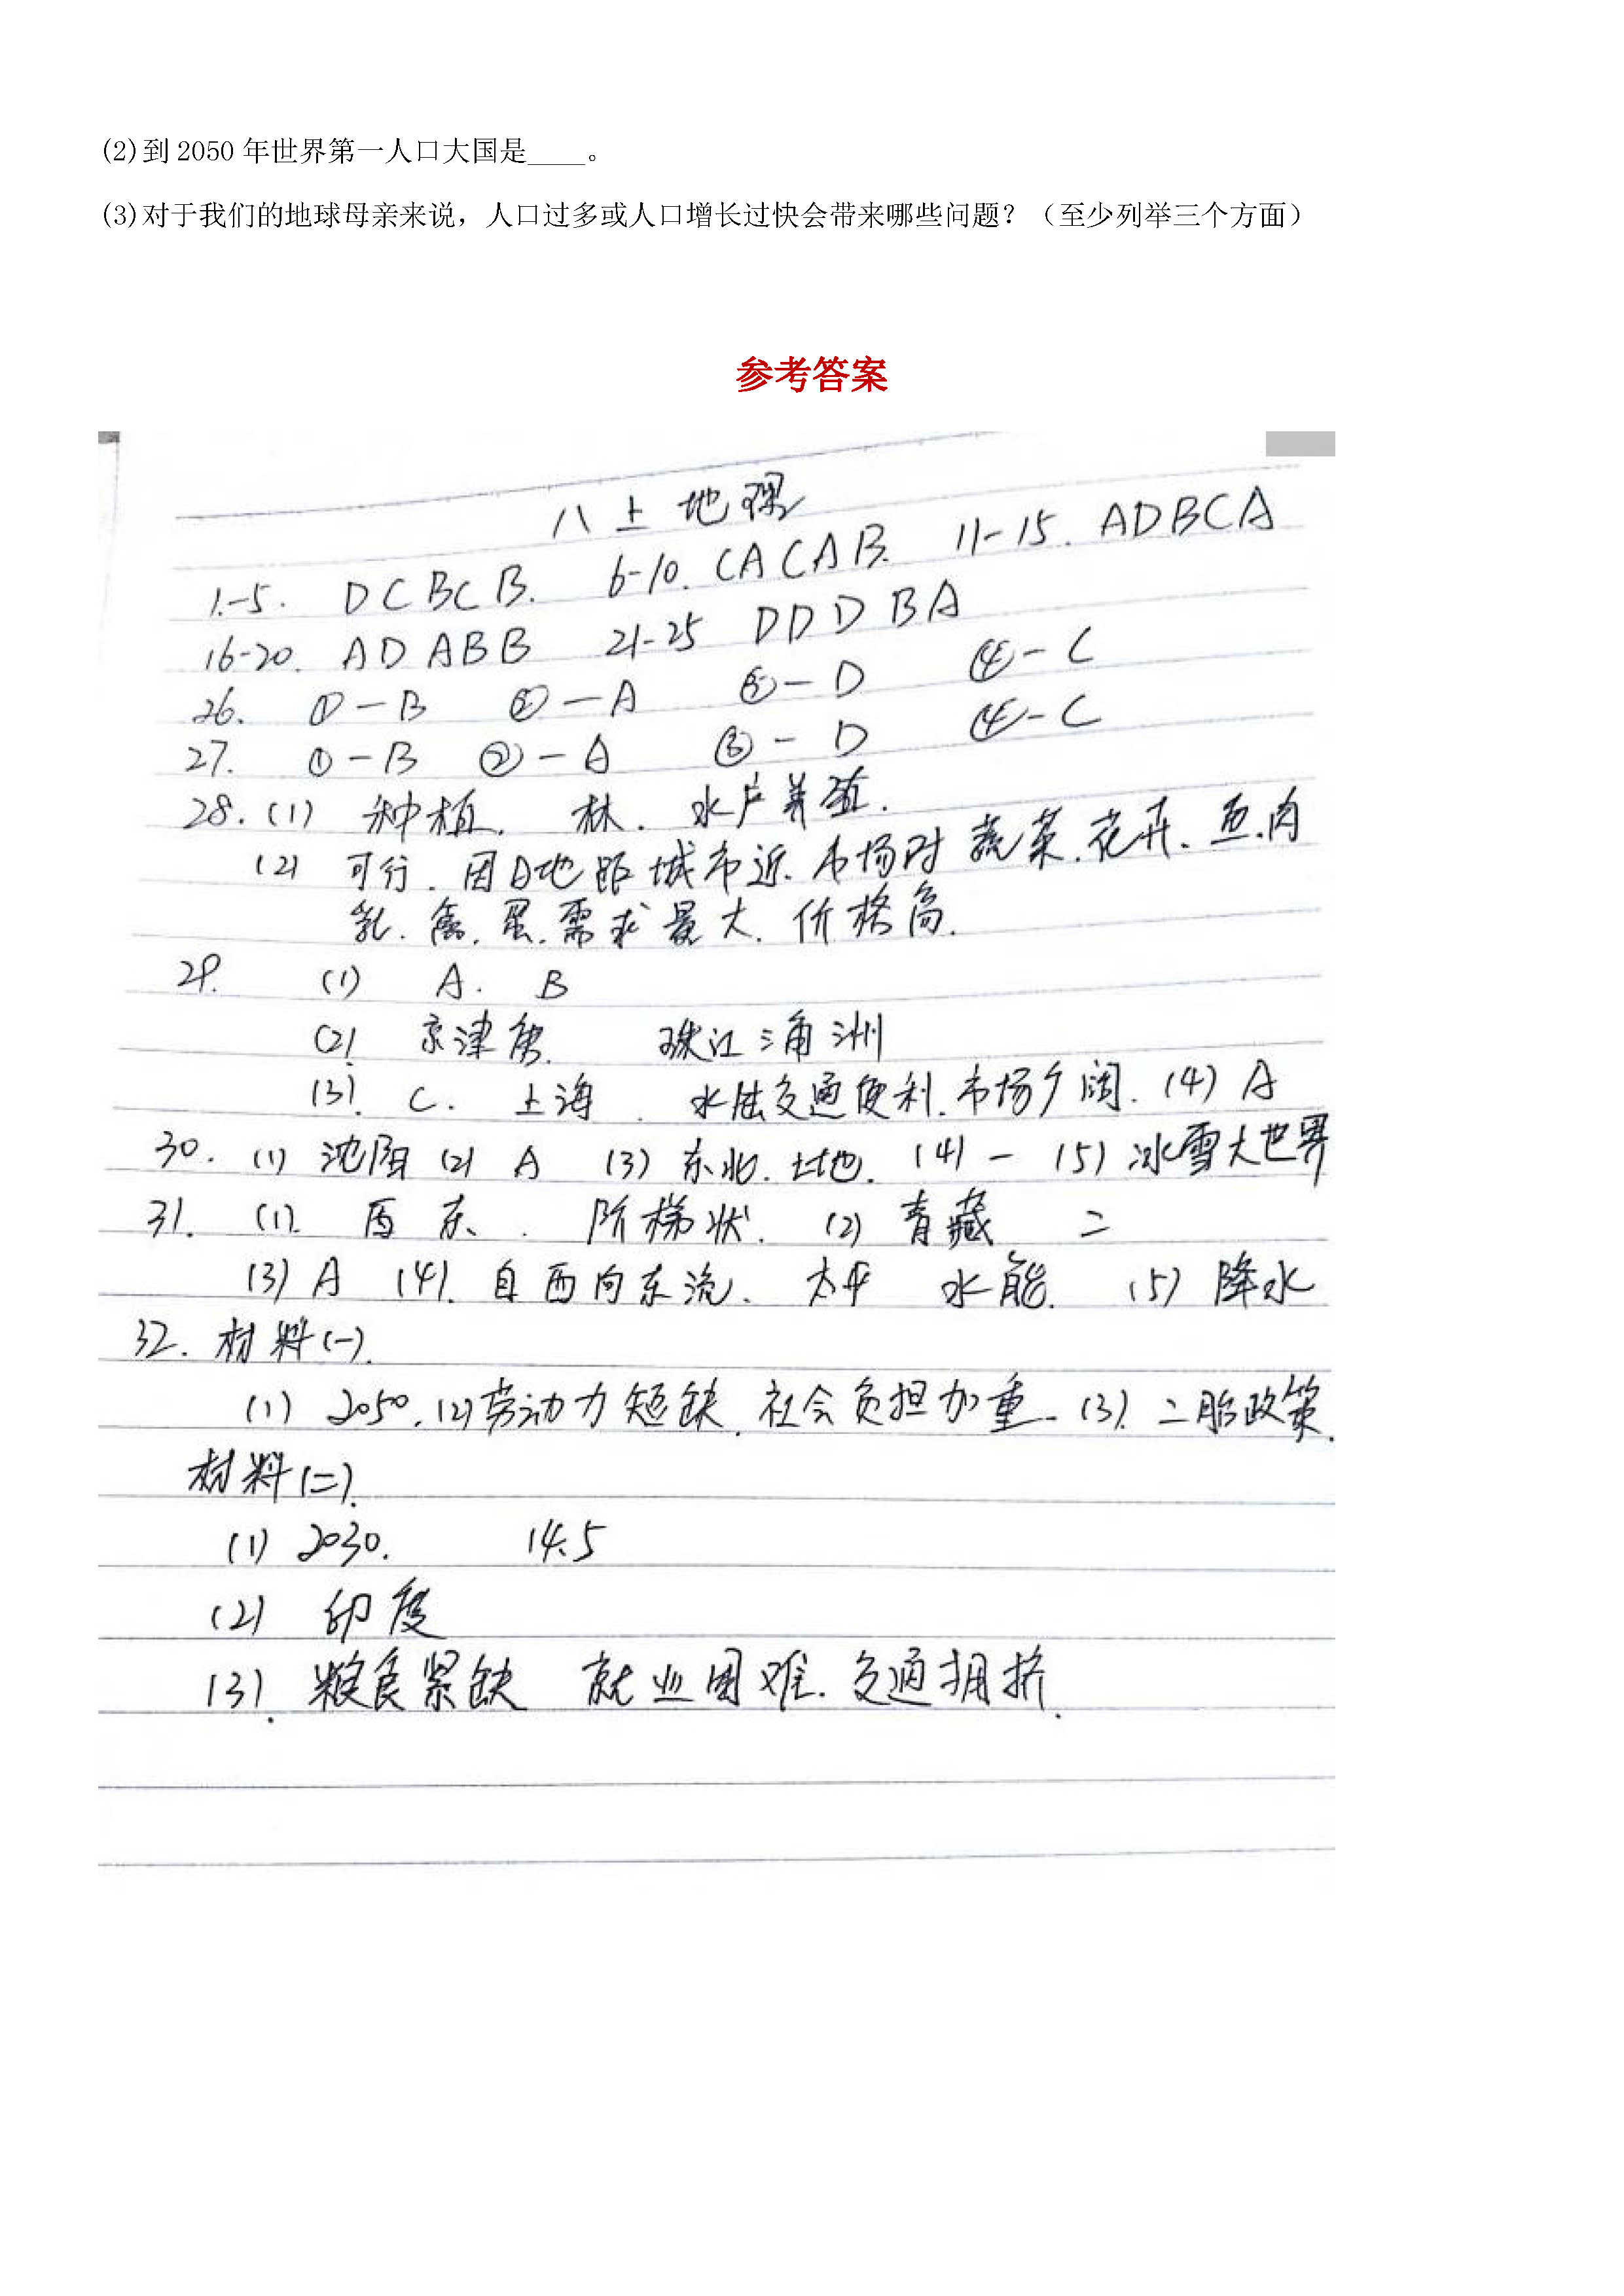 (2)到2050年世界第一人口大国是____。
(3)对于我们的地球母亲来说，人口过多或人口增长过快会带来哪些问题？（至少列举三个方面）
参考答案
八上地理
1.-5. DCBCB. 6-10. CACAB. 11-15. ADBCA
16-20. ADABB 21-25 DDDBA
26. ①-B ②-A ③-D ④-C
27. ①-B ②-A ③-D ④-C
28.(1) 种植. 林. 水产养殖.
(2) 可行. 因D地距城市近. 市场对蔬菜.花卉.鱼.肉
乳.禽.蛋.需求量大. 价格高.
29. (1) A. B
(2) 京津唐. 珠江三角洲
(3). C. 上海. 水陆交通便利.市场广阔. (4) A
30. (1) 沈阳 (2) A (3) 东北. 土地. (4) 一 (5) 冰雪大世界
31. (1). 西 东. 阶梯状. (2) 青藏 二
(3) A (4). 自西向东流. 太平 水能. (5) 降水
32. 材料(一).
(1) 2050. (2) 劳动力短缺.社会负担加重. (3). 二胎政策.
材料(二).
(1) 2030. 14.5
(2) 印度
(3). 粮食紧缺 就业困难.交通拥挤.